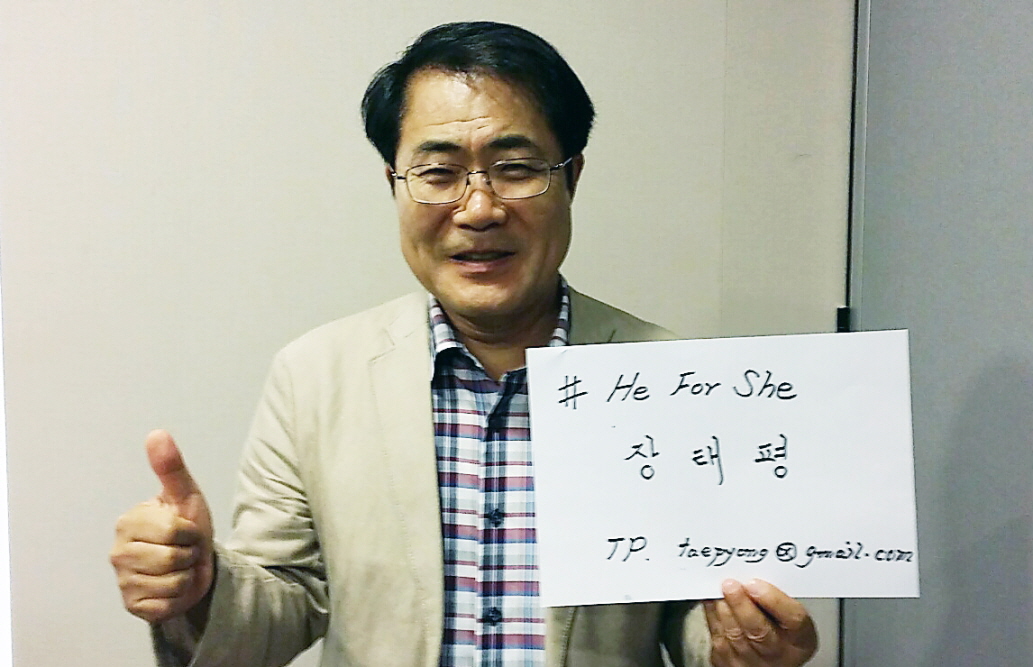 # He For She
장 태 평
TP. taepyong@gmail.com